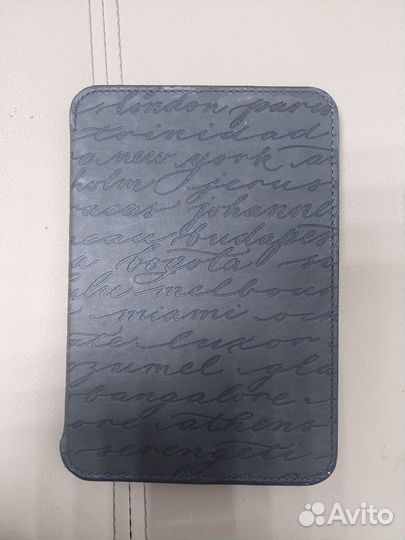 london paris
trinidad
new york
holm jerus
racas johanne
acau budapes
a bogota
ulu melbou
miami
ate luxor
zumel gla
bangalore
ore athens
serengeti
Avito